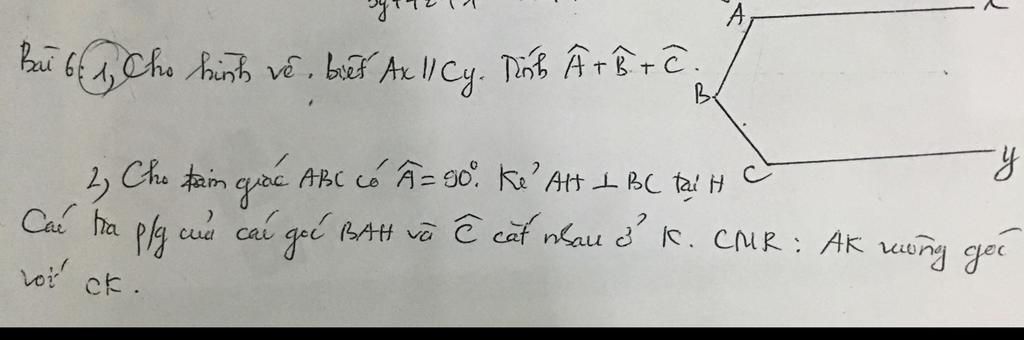 A x
Bài 6: 1, Cho hình vẽ. biết Ax // Cy. Tính Â + B̂ + Ĉ.
B
2, Cho tam giác ABC có Â = 90°. Kẻ AH ⊥ BC tại H
C y
Các tia p/g của các góc BAH và Ĉ cắt nhau ở K. CMR: AK vuông góc
với CK.